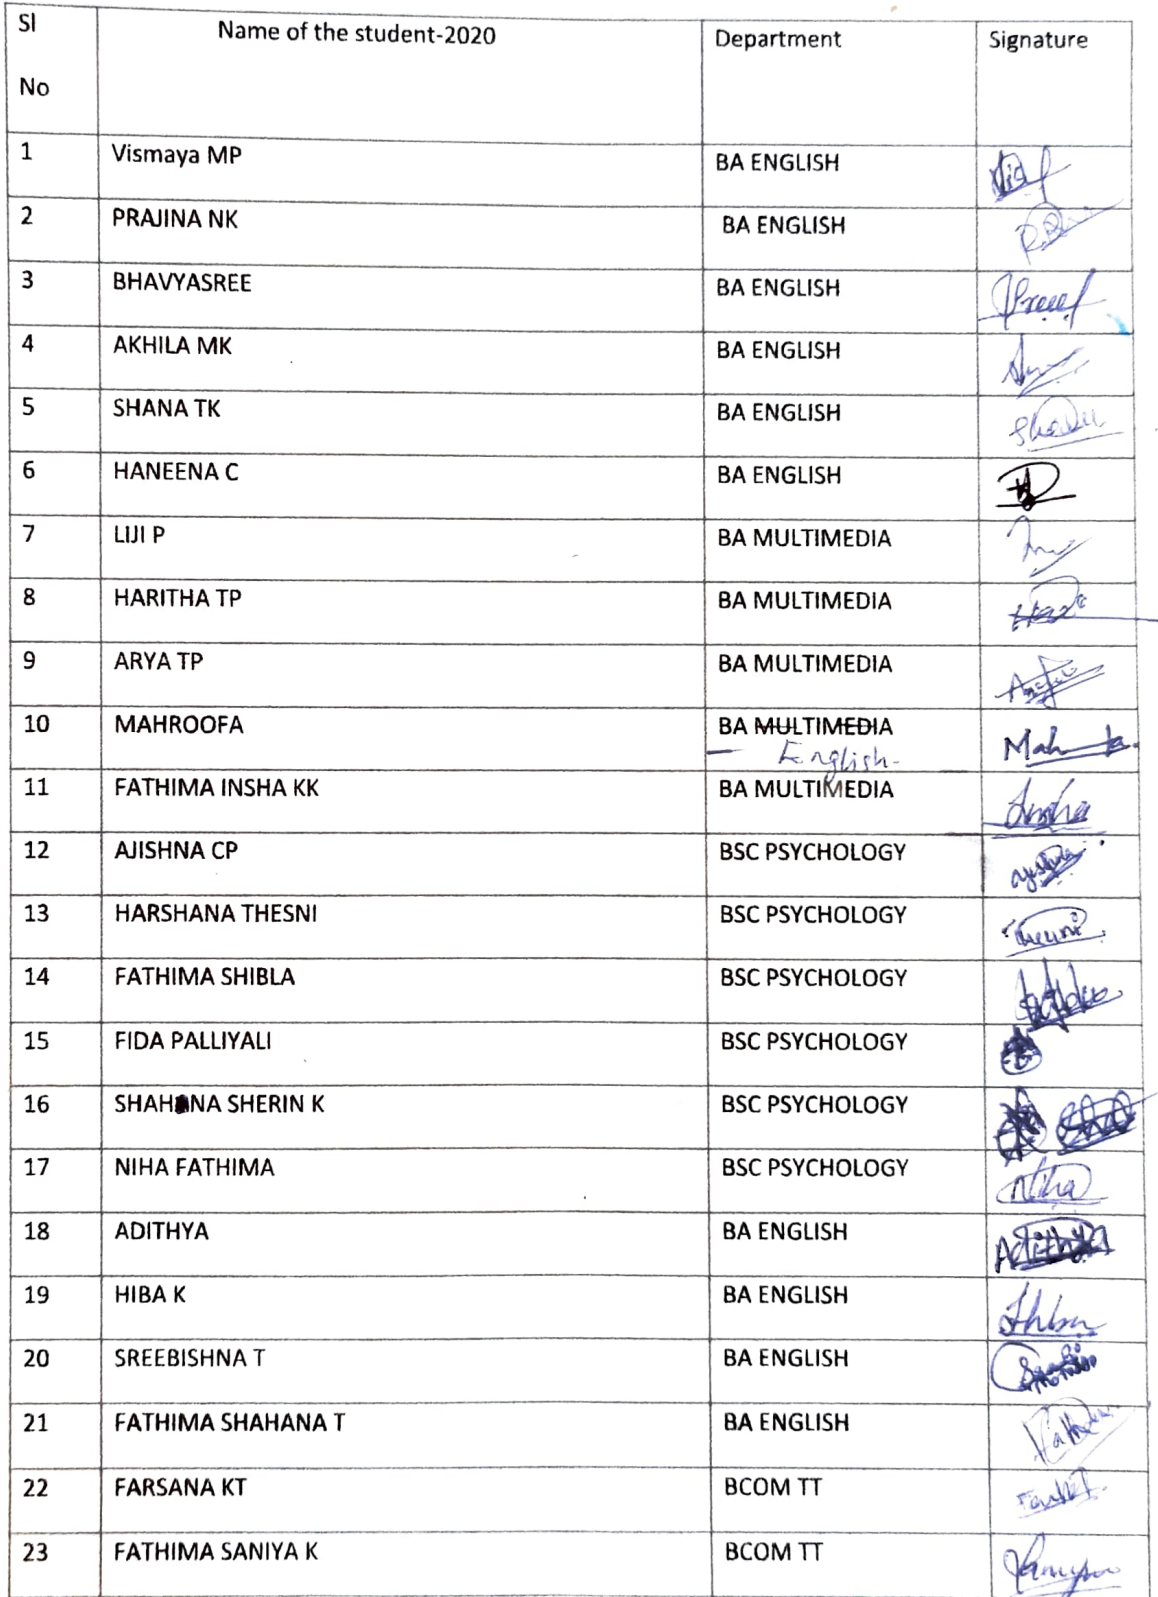 Sl No Name of the student-2020 Department Signature
1 Vismaya MP BA ENGLISH
2 PRAJINA NK BA ENGLISH
3 BHAVYASREE BA ENGLISH
4 AKHILA MK BA ENGLISH
5 SHANA TK BA ENGLISH
6 HANEENA C BA ENGLISH
7 LIJI P BA MULTIMEDIA
8 HARITHA TP BA MULTIMEDIA
9 ARYA TP BA MULTIMEDIA
10 MAHROOFA BA MULTIMEDIA
English
11 FATHIMA INSHA KK BA MULTIMEDIA Insha
12 AJISHNA CP BSC PSYCHOLOGY
13 HARSHANA THESNI BSC PSYCHOLOGY
14 FATHIMA SHIBLA BSC PSYCHOLOGY
15 FIDA PALLIYALI BSC PSYCHOLOGY
16 SHAHANA SHERIN K BSC PSYCHOLOGY
17 NIHA FATHIMA BSC PSYCHOLOGY Niha
18 ADITHYA BA ENGLISH Adithya
19 HIBA K BA ENGLISH
20 SREEBISHNA T BA ENGLISH
21 FATHIMA SHAHANA T BA ENGLISH
22 FARSANA KT BCOM TT
23 FATHIMA SANIYA K BCOM TT